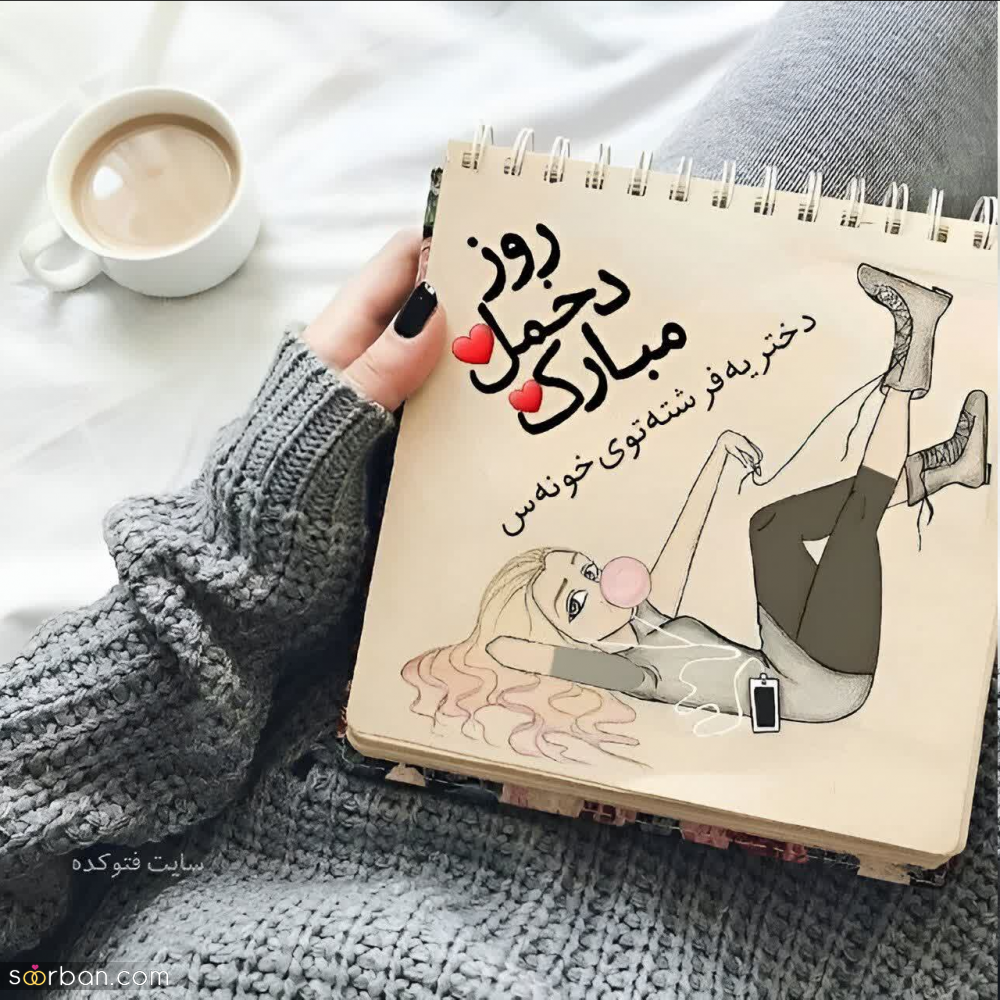 روز
دخمل
مبارک
دختر یه فرشته توی خونه‌س
سایت فتوکده
soorban.com